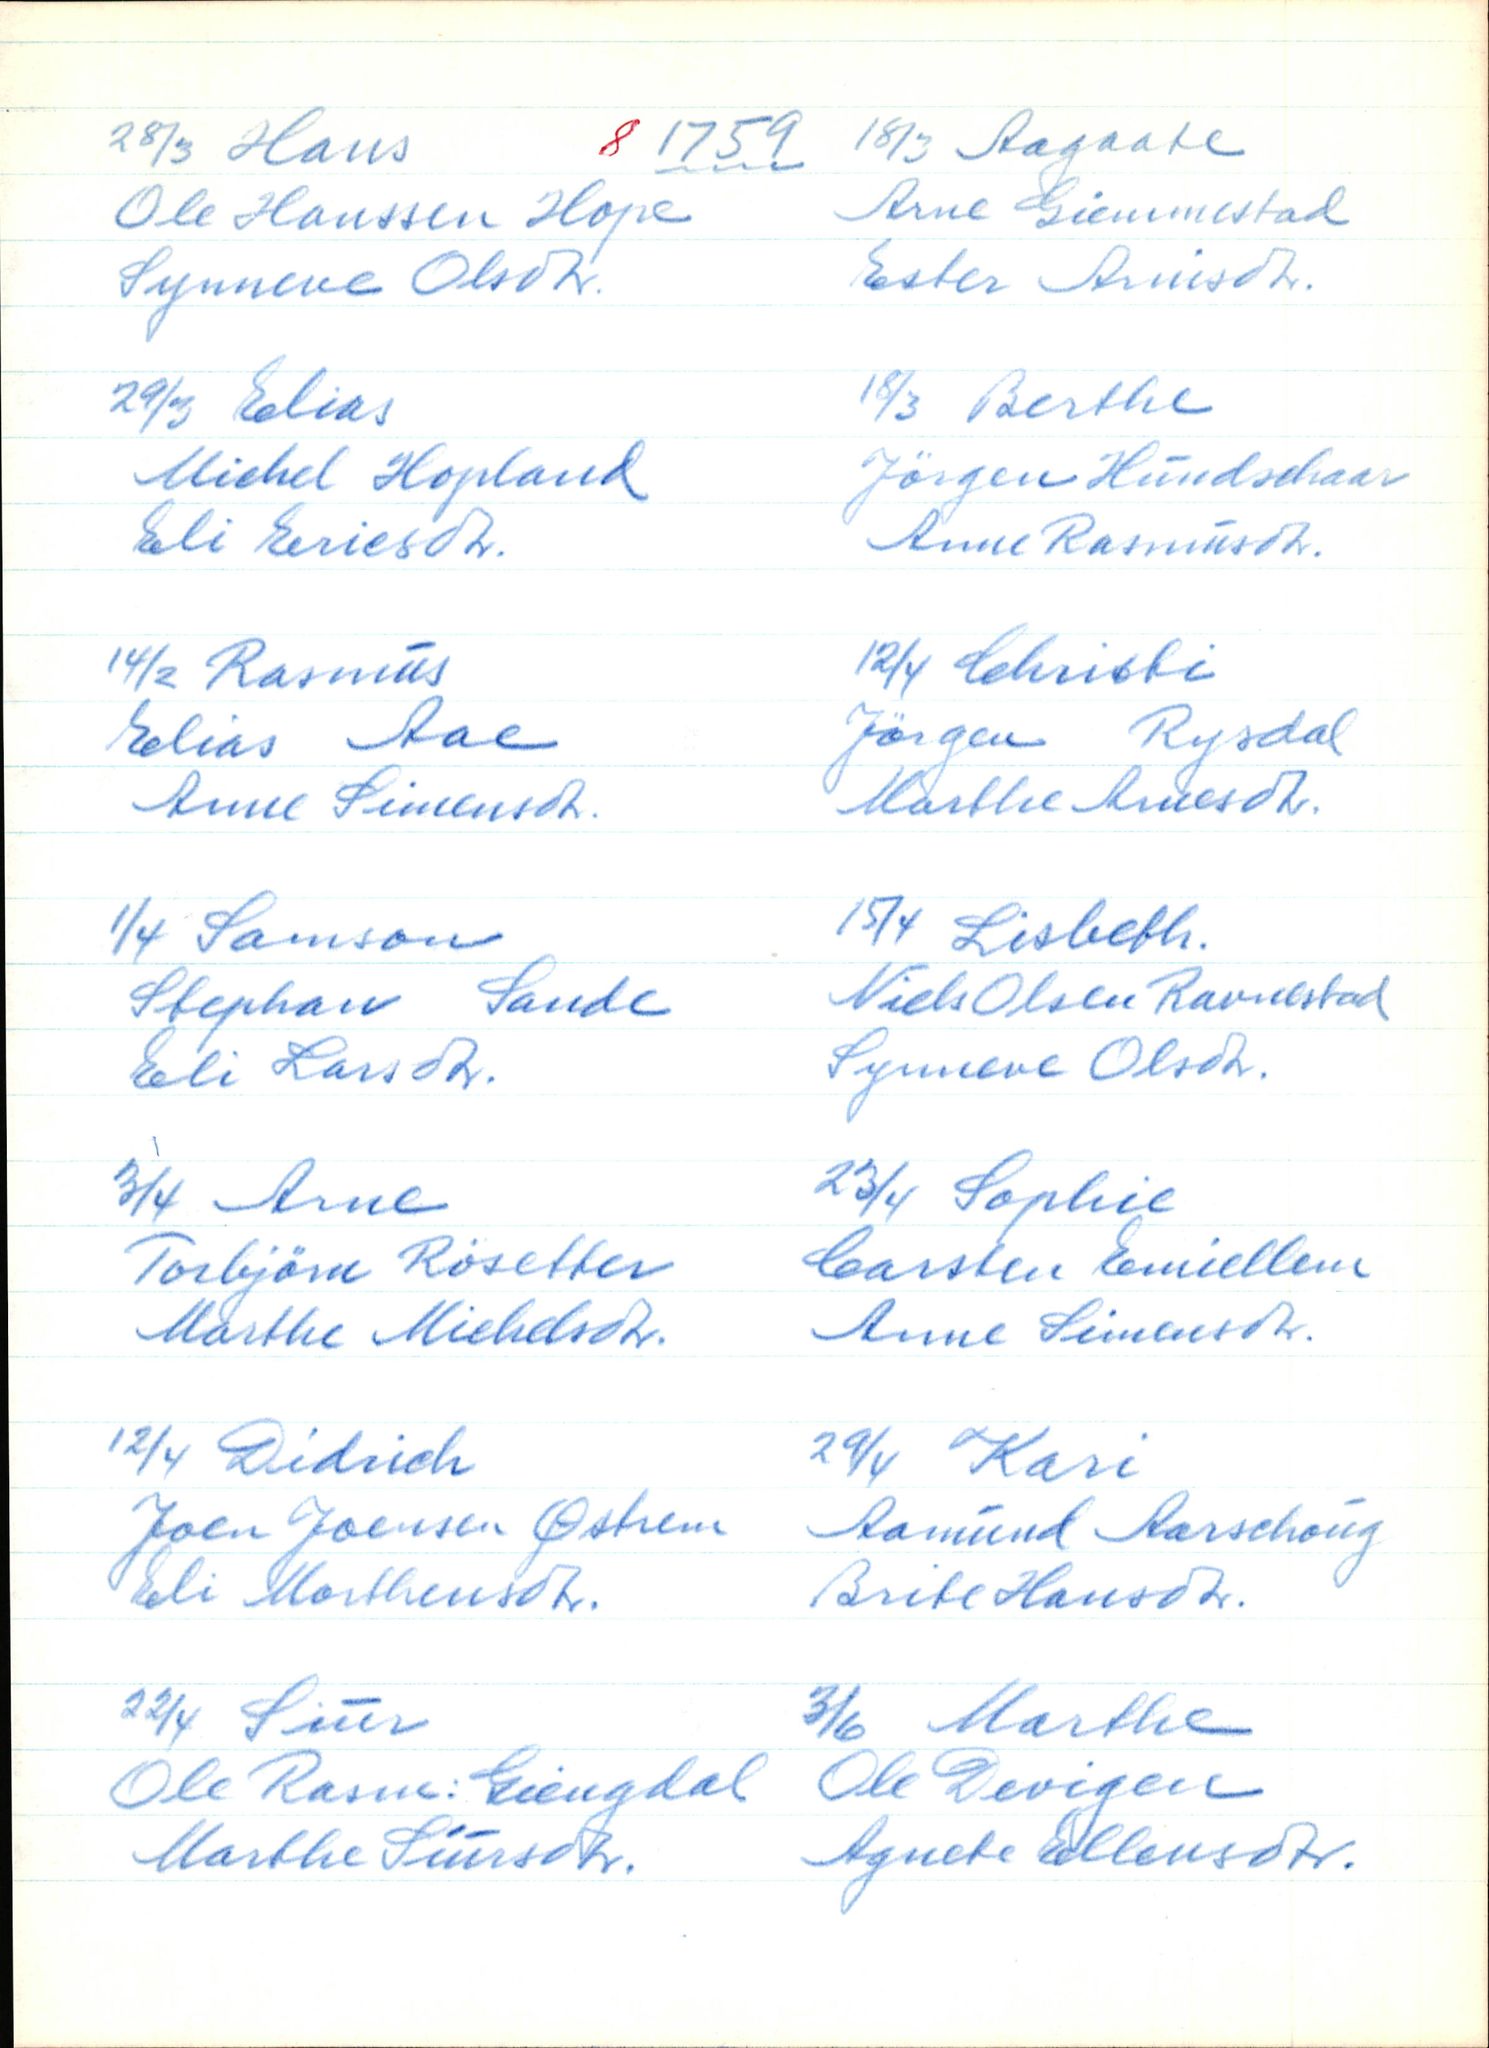 8 1759
28/3 Hans
Ole Hanssen Hope
Synneve Olsdtr.
29/3 Elias
Michel Hopland
Eli Ericsdtr.
14/2 Rasmus
Elias Aae
Anne Simensdtr.
1/4 Samson
Stephan Sande
Eli Larsdtr.
3/4 Arne
Torbjörn Rösetter
Marthe Michelsdtr.
12/4 Didrich
Joen Joensen Østrem
Eli Morthensdtr.
22/4 Siur
Ole Rasm: Giengdal
Marthe Siursdtr.
18/3 Aagaate
Arne Giemmestad
Ester Arnisdtr.
18/3 Berthe
Jörgen Hundschaar
Anne Rasmusdtr.
12/4 Christi
Jörgen Rysdal
Marthe Arnesdtr.
15/4 Lisbeth.
Niels Olsen Ravnestad
Synneve Olsdtr.
23/4 Sophie
Carsten Emiellem
Anne Simensdtr.
29/4 Kari
Aamund Aarschoug
Brite Hansdtr.
3/6 Marthe
Ole Devigen
Agnete Ellensdtr.